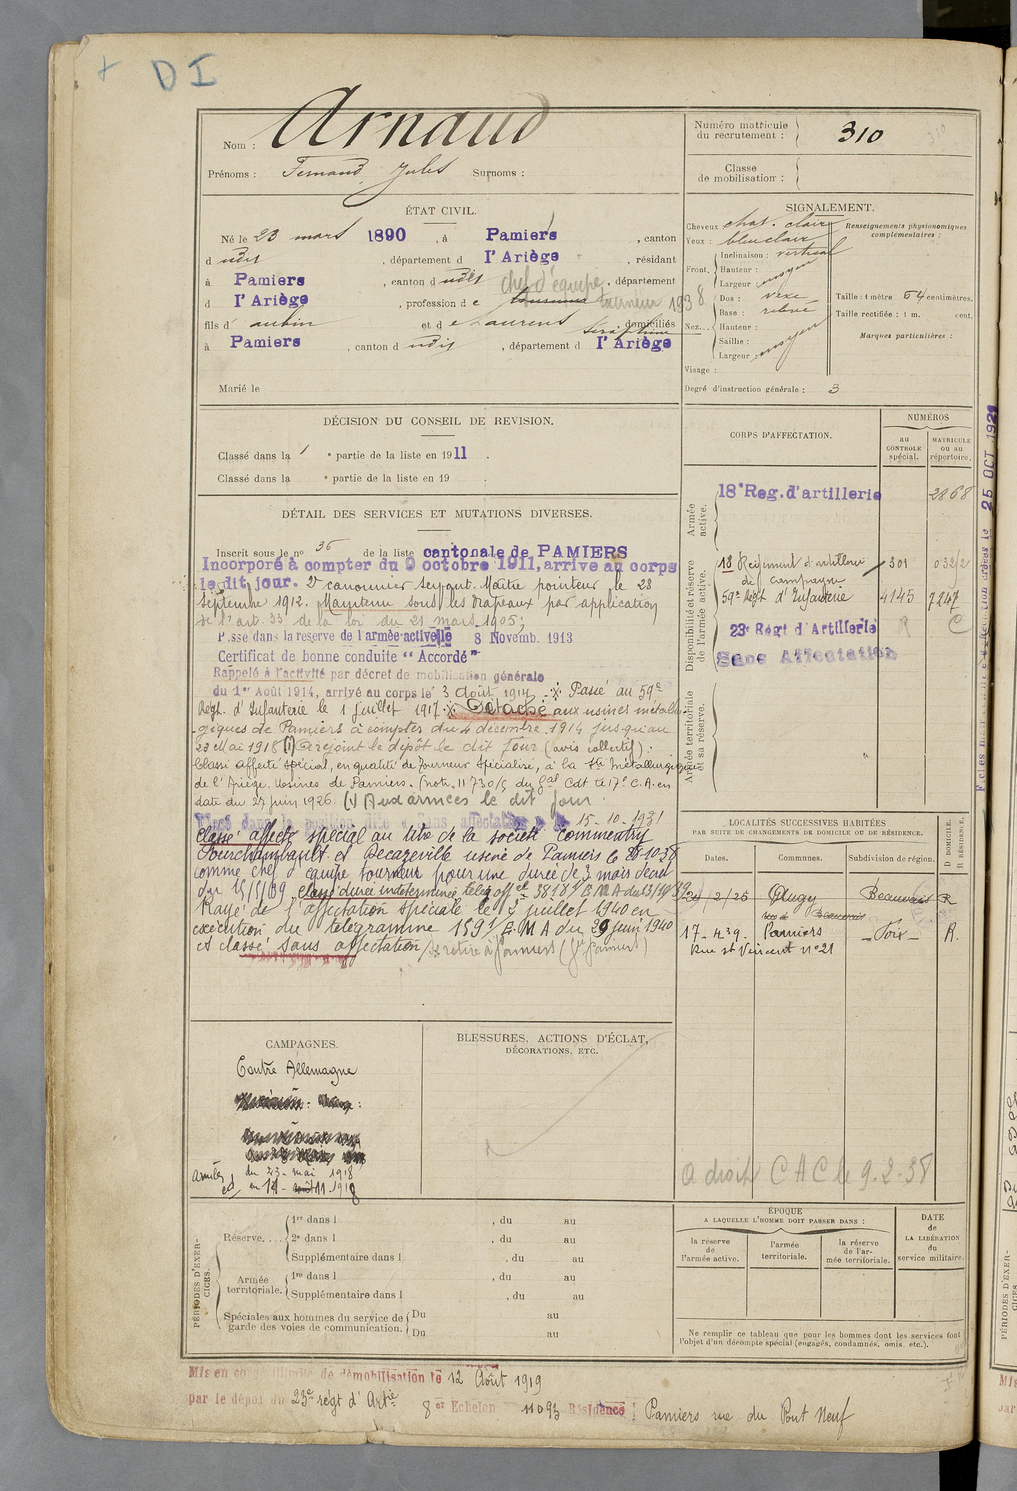 + D I
Nom : Arnaud
Prénoms : Fernand Jules Surnoms :
Numéro matricule du recrutement : 310
Classe de mobilisation :
ÉTAT CIVIL.
Né le 23 mars 1890, à Pamiers, canton
d udit, département d l'Ariège, résidant
à Pamiers, canton d udit chef d'équipe, département
d l'Ariège, profession d e tourneur 1938
fils d' aubin et d e Laurens Séraphine, domiciliés
à Pamiers, canton d udit, département d l'Ariège
Marié le
SIGNALEMENT.
Cheveux chat. clair
Yeux : bleu clair
Front. Inclinaison : vertical
Hauteur : moyen
Largeur :
Nez... Dos : vexe
Base : relevé
Hauteur : moyen
Saillie :
Largeur :
Visage :
Degré d'instruction générale : 3
Renseignements physionomiques complémentaires :
Taille : 1 mètre 64 centimètres.
Taille rectifiée : 1 m. cent.
Marques particulières :
DÉCISION DU CONSEIL DE REVISION.
Classé dans la 1 e partie de la liste en 1911.
Classé dans la e partie de la liste en 19 .
DÉTAIL DES SERVICES ET MUTATIONS DIVERSES.
Inscrit sous le n° 36 de la liste cantonale de PAMIERS
Incorporé à compter du 9 octobre 1911, arrivé au corps
le dit jour. 2e canonnier servant. Maître pointeur le 28
Septembre 1912. Maintenu sous les drapeaux par application
de l'art. 33 de la loi du 21 mars 1905;
Passé dans la réserve de l'armée active le 8 Novemb. 1913
Certificat de bonne conduite "Accordé"
Rappelé à l'activité par décret de mobilisation générale
du 1er Août 1914, arrivé au corps le 3 Août 1914 - Passé au 59e
Régt. d'Infanterie le 1 Juillet 1917. Détaché aux usines métallur-
-giques de Pamiers à compter du 4 décembre 1914 jusqu'au
23 Mai 1918 (1) a rejoint le dépôt le dit jour (avis collectif) :
Classé affecté spécial, en qualité de Tourneur Spécialisé, à la Sté Métallurgique
de l'Ariège, Usines de Pamiers. (note 11730/5 du Gal Cdt le 17e C.A. en
date du 27 juin 1926. (1) Aux armées le dit jour.
Passé dans la position dite « Sans affectation » le 15-10-1931
Classé affecté spécial au titre de la société Commentry
Fourchambault et Decazeville usine de Pamiers le 25.10.38
comme chef d'équipe tourneur pour une durée de 3 mois
du 15/5/39 classé durée indéterminée télég offel 3818
Rayé de l'affectation spéciale le 2 juillet 1940 en
exécution du télégramme 1591 E.M.A du 29 juin 1940
et classé sans affectation se retire à Pamiers
CORPS D'AFFECTATION.
NUMÉROS
au CONTROLE spécial.
MATRICULE ou au répertoire.
Armée active.
18e Reg. d'artillerie 2868
Disponibilité et réserve de l'armée active.
18 Régiment d'artillerie de campagne 301
59e Régt d'Infanterie 4145 7247
23e Régt d'Artillerie R C
Sans Affectation
Armée territoriale et sa réserve.
25 OCT 1921
LOCALITÉS SUCCESSIVES HABITÉES
PAR SUITE DE CHANGEMENTS DE DOMICILE OU DE RÉSIDENCE.
Dates. Communes. Subdivision de région. D DOMICILE. R RÉSIDENCE.
/2/25 Beauvais R
17-4 39. Pamiers - Foix - R.
Rue St Vincent n° 21
CAMPAGNES.
Contre Allemagne
du 23 - mai 1918
en 11 - 11 - 1918
BLESSURES, ACTIONS D'ÉCLAT,
DÉCORATIONS, ETC.
a droit CAC le 9-2-38
PÉRIODES D'EXERCICES.
Réserve.... 1re dans l , du au
2e dans l , du au
Supplémentaire dans l , du au
Armée territoriale. 1re dans l , du au
Supplémentaire dans l , du au
Spéciales aux hommes du service de garde des voies de communication. Du au
Du au
ÉPOQUE
A LAQUELLE L'HOMME DOIT PASSER DANS :
la réserve de l'armée active. l'armée territoriale. la réserve de l'armée territoriale.
DATE de LA LIBÉRATION du service militaire.
Ne remplir ce tableau que pour les hommes dont les services font
l'objet d'un décompte spécial (engagés, condamnés, omis, etc.).
Mis en congé illimité de démobilisation le 12 Août 1919
par le dépôt du 23e régt d'Artie 8er Echelon 11093 Résidence : Pamiers rue du Pont Neuf